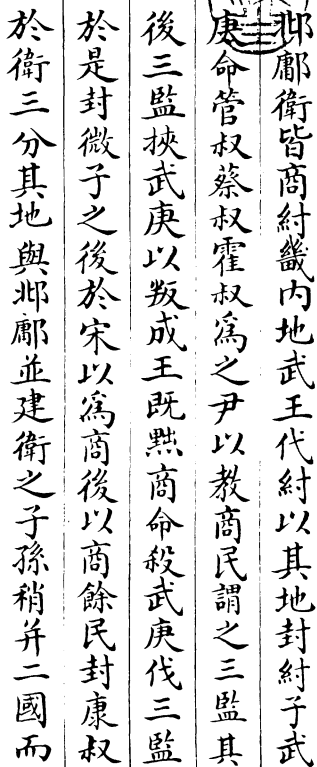 邶鄘衛皆商紂畿内地武王代紂以其地封紂子武
庚命管叔蔡叔霍叔爲之尹以教商民謂之三監其
後三監挾武庚以叛成王既㸃商命殺武庚伐三監
於是封微子之後於宋以爲商後以商餘民封康叔
於衛三分其地與邶鄘並建衛之子孫稍并二國而